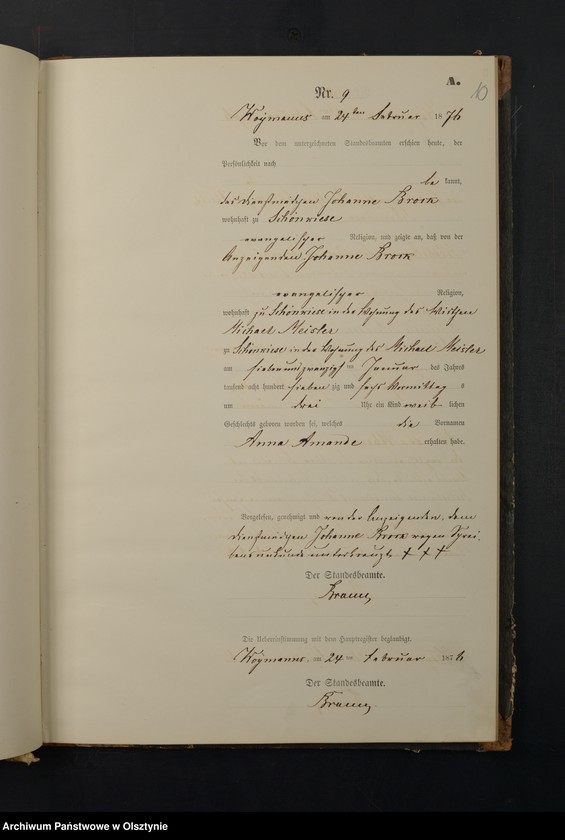 A.
10
Nr. 9
Woymanns am 24ten Februar 1876
Vor dem unterzeichneten Standesbeamten erschien heute, der
Persönlichkeit nach
be kannt,
das Dienstmädchen Johanne Brosk
wohnhaft zu Schönwiese
evangelischer Religion, und zeigte an, daß von der
Anzeigenden Johanne Brosk
evangelischer Religion,
wohnhaft zu Schönwiese in der Wohnung des
Michael Meister
zu Schönwiese in der Wohnung des Michael Meister
am siebenundzwanzigsten Januar des Jahres
tausend acht hundert sieben zig und sechs Vormittag s
um drei Uhr ein Kind weib lichen
Geschlechts geboren worden sei, welches die Vornamen
Anna Amande erhalten habe.
Vorgelesen, genehmigt und von der Anzeigenden, dem
Dienstmädchen Johanne Brosk wegen Schrei-
bensunkunde unterkreuzt + + +
Der Standesbeamte.
Die Uebereinstimmung mit dem Hauptregister beglaubigt.
Woymanns, am 24 ten Februar 1876
Der Standesbeamte.
Archiwum Państwowe w Olsztynie